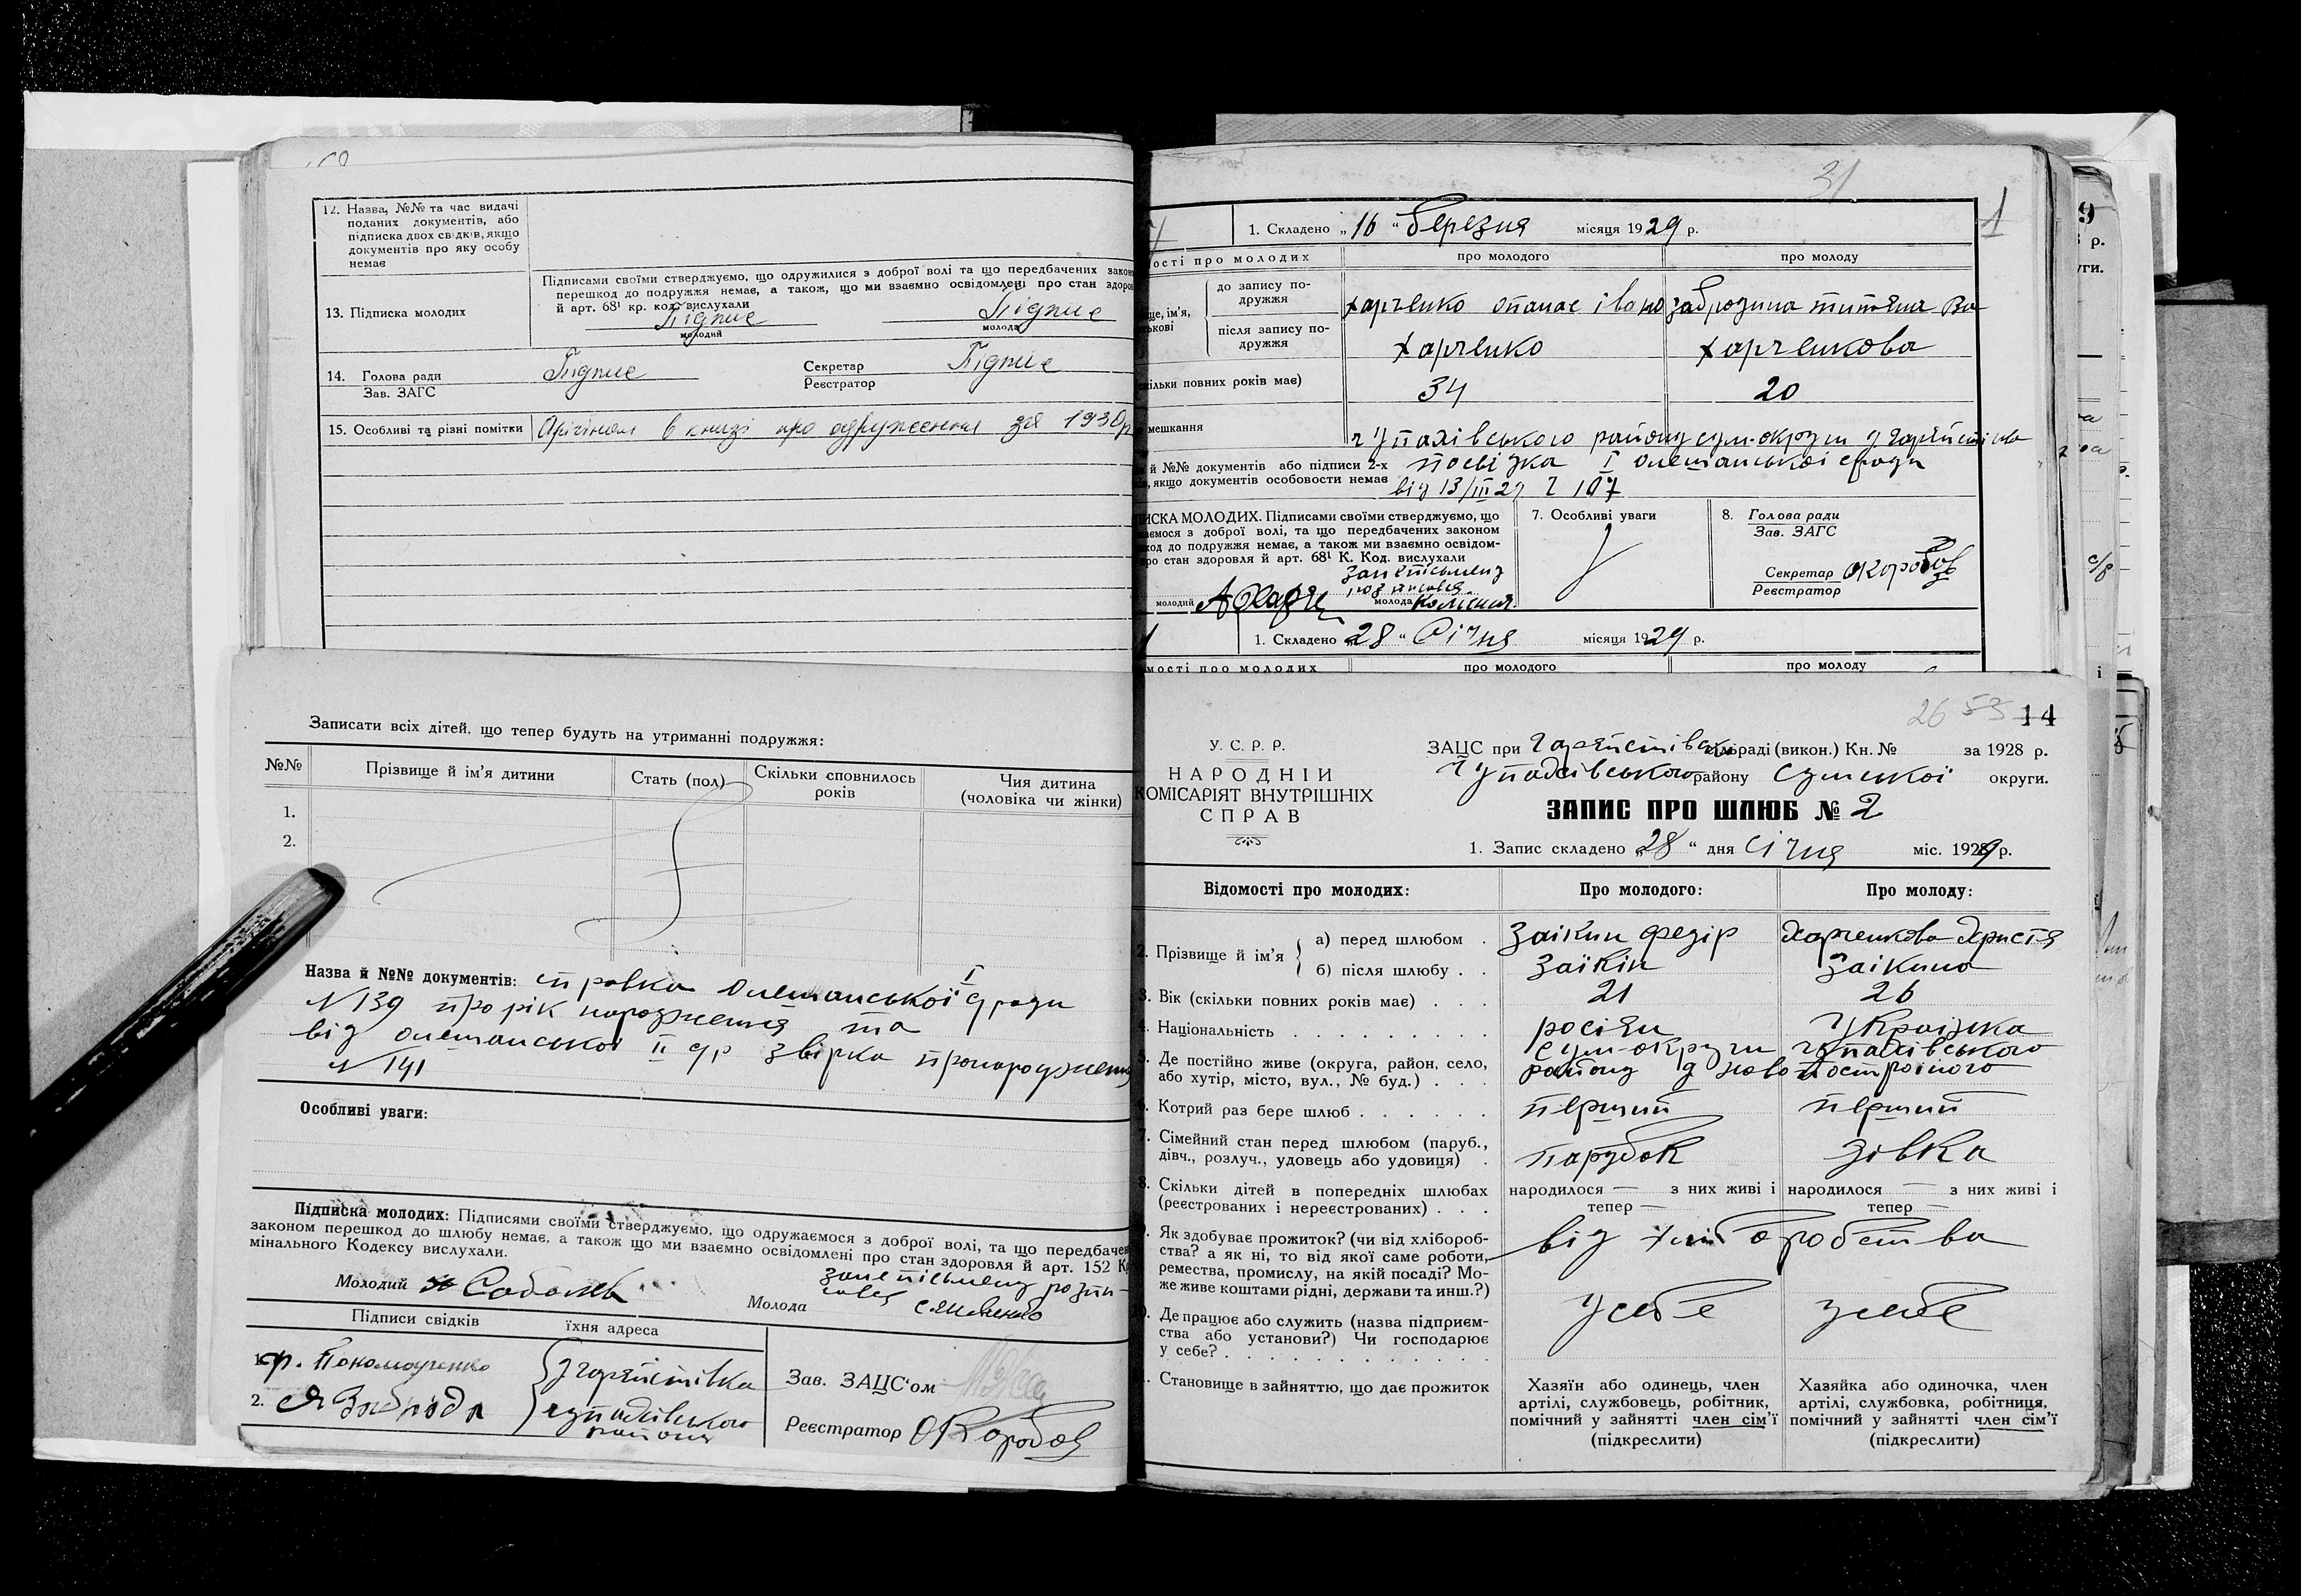 12. Назва, №№ та час видачі
поданих документів, або
підписка двох свідків, якщо
документів про яку особу
немає
13. Підписка молодих
Підписами своїми стверджуємо, що одружилися з доброї волі та що передбачених закон
перешкод до подружжя немає, а також, що ми взаємно освідомлені про стан здоров
й арт. 68¹ кр. код. вислухали
Підпис Підпис
молодий молода
14. Голова ради Підпис Секретар Підпис
Зав. ЗАГС Реєстратор
15. Особливі та різні помітки в книзі про одруження за 1930р
Записати всіх дітей, що тепер будуть на утриманні подружжя:
№№ Прізвище й ім'я дитини Стать (пол) Скільки сповнилось
років Чия дитина
(чоловіка чи жінки)
1.
2.
Назва й №№ документів: справка Олешанської І с/ради
N 139 про рік народження та
від олешанської ІІ с/р звірка пронародження
N 141
Особливі уваги:
Підписка молодих: Підписями своїми стверджуємо, що одружаємося з доброї волі, та що передбачен
законом перешкод до шлюбу немає, а також що ми взаємно освідомлені про стан здоровля й арт. 152 К
мінального Кодексу вислухали.
Молодий
Молода
Підписи свідків їхня адреса
1. Ф. Пономаренко
2. Я
Зав. ЗАЦС'ом
Реєстратор ОКоробов
31
1
1. Складено „16“ березня місяця 1929 р.
ості про молодих про молодого про молоду
ще, ім'я,
ькові
до запису по-
дружжя
Харченко опанас івано забродина титяна Ва
після запису по-
дружжя
Харченко Харченкова
кільки повних років має) 34 20
мешкання
й №№ документів або підписи 2-х посвідка І Олешанської с/ради
, якщо документів особовости немає від 13/ІІІ 29 Ч 107
ИСКА МОЛОДИХ. Підписами своїми стверджуємо, що
аємося з доброї волі, та що передбачених законом
код до подружжя немає, а також ми взаємно освідом-
ро стан здоровля й арт. 68¹ К. Код. вислухали
молодий АХарче молода
7. Особливі уваги
8. Голова ради
Зав. ЗАГС
Секретар ОКоробов
Реєстратор
1. Складено „28“ Січня місяця 1929 р.
мості про молодих про молодого про молоду
26 53 14
У. С. Р. Р.
НАРОДНІЙ
КОМІСАРІЯТ ВНУТРІШНІХ
СПРАВ
ЗАЦС при сільраді (викон.) Кн. № за 1928 р.
району Сумської округи.
ЗАПИС ПРО ШЛЮБ № 2
1. Запис складено „28“ дня Січня міс. 1929 р.
Відомості про молодих: Про молодого: Про молоду:
2. Прізвище й ім'я
а) перед шлюбом . Заікин Федір Харченкова Христя
б) після шлюбу . . Заїкін Заікина
3. Вік (скільки повних років має) . . . 21 26
4. Національність . . . . . . . . . росіян Українка
5. Де постійно живе (округа, район, село,
або хутір, місто, вул., № буд.) . . .
6. Котрий раз бере шлюб . . . . . . перший перший
7. Сімейний стан перед шлюбом (паруб.,
дівч., розлуч., удовець або удовиця) . парубок дівка
8. Скільки дітей в попередніх шлюбах
(реєстрованих і нереєстрованих) . . .
народилося — з них живі і
тепер —
народилося — з них живі і
тепер —
9. Як здобуває прожиток? (чи від хлібороб-
ства? а як ні, то від якої саме роботи,
ремества, промислу, на якій посаді? Мо-
же живе коштами рідні, держави та инш.?)
від хліборобства
10. Де працює або служить (назва підприєм-
ства або установи?) Чи господарює
у себе? . . . . . . . . . . . . .
Усебе усебе
. Становище в зайняттю, що дає прожиток
Хазяїн або одинець, член
артілі, службовець, робітник,
помічний у зайнятті член сім'ї
(підкреслити)
Хазяйка або одиночка, член
артілі, службовка, робітниця,
помічний у зайнятті член сім'ї
(підкреслити)